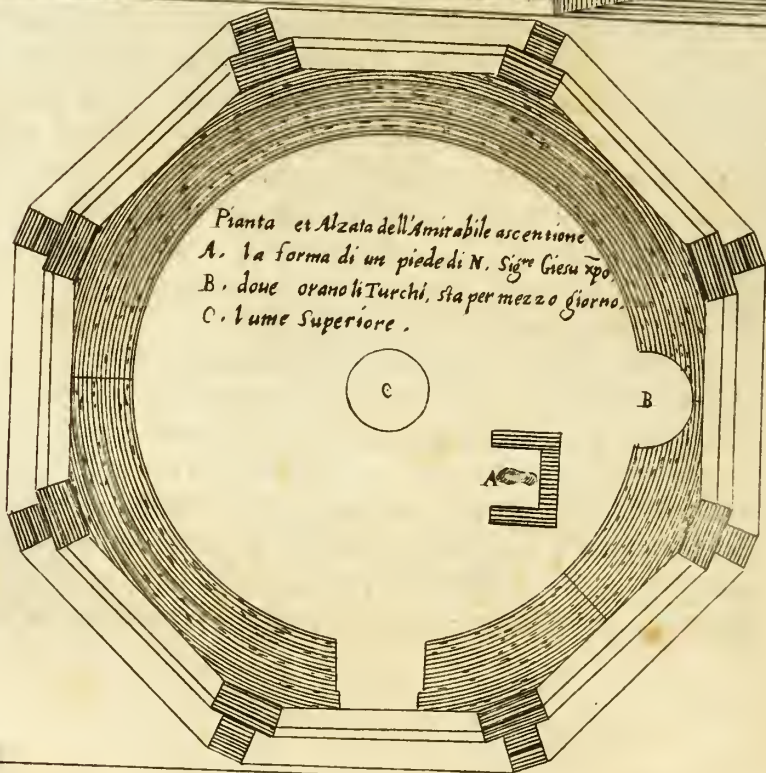 Pianta et Alzata dell'Amirabile ascentione
A. la forma di un piede di N. Sig.re Giesu x̄po.
B. doue orano li Turchi, sta per mezzo giorno.
C. lume Superiore.
C
B
A